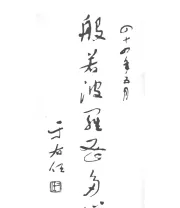 四十四年五月
般若波羅蜜多心
于右任